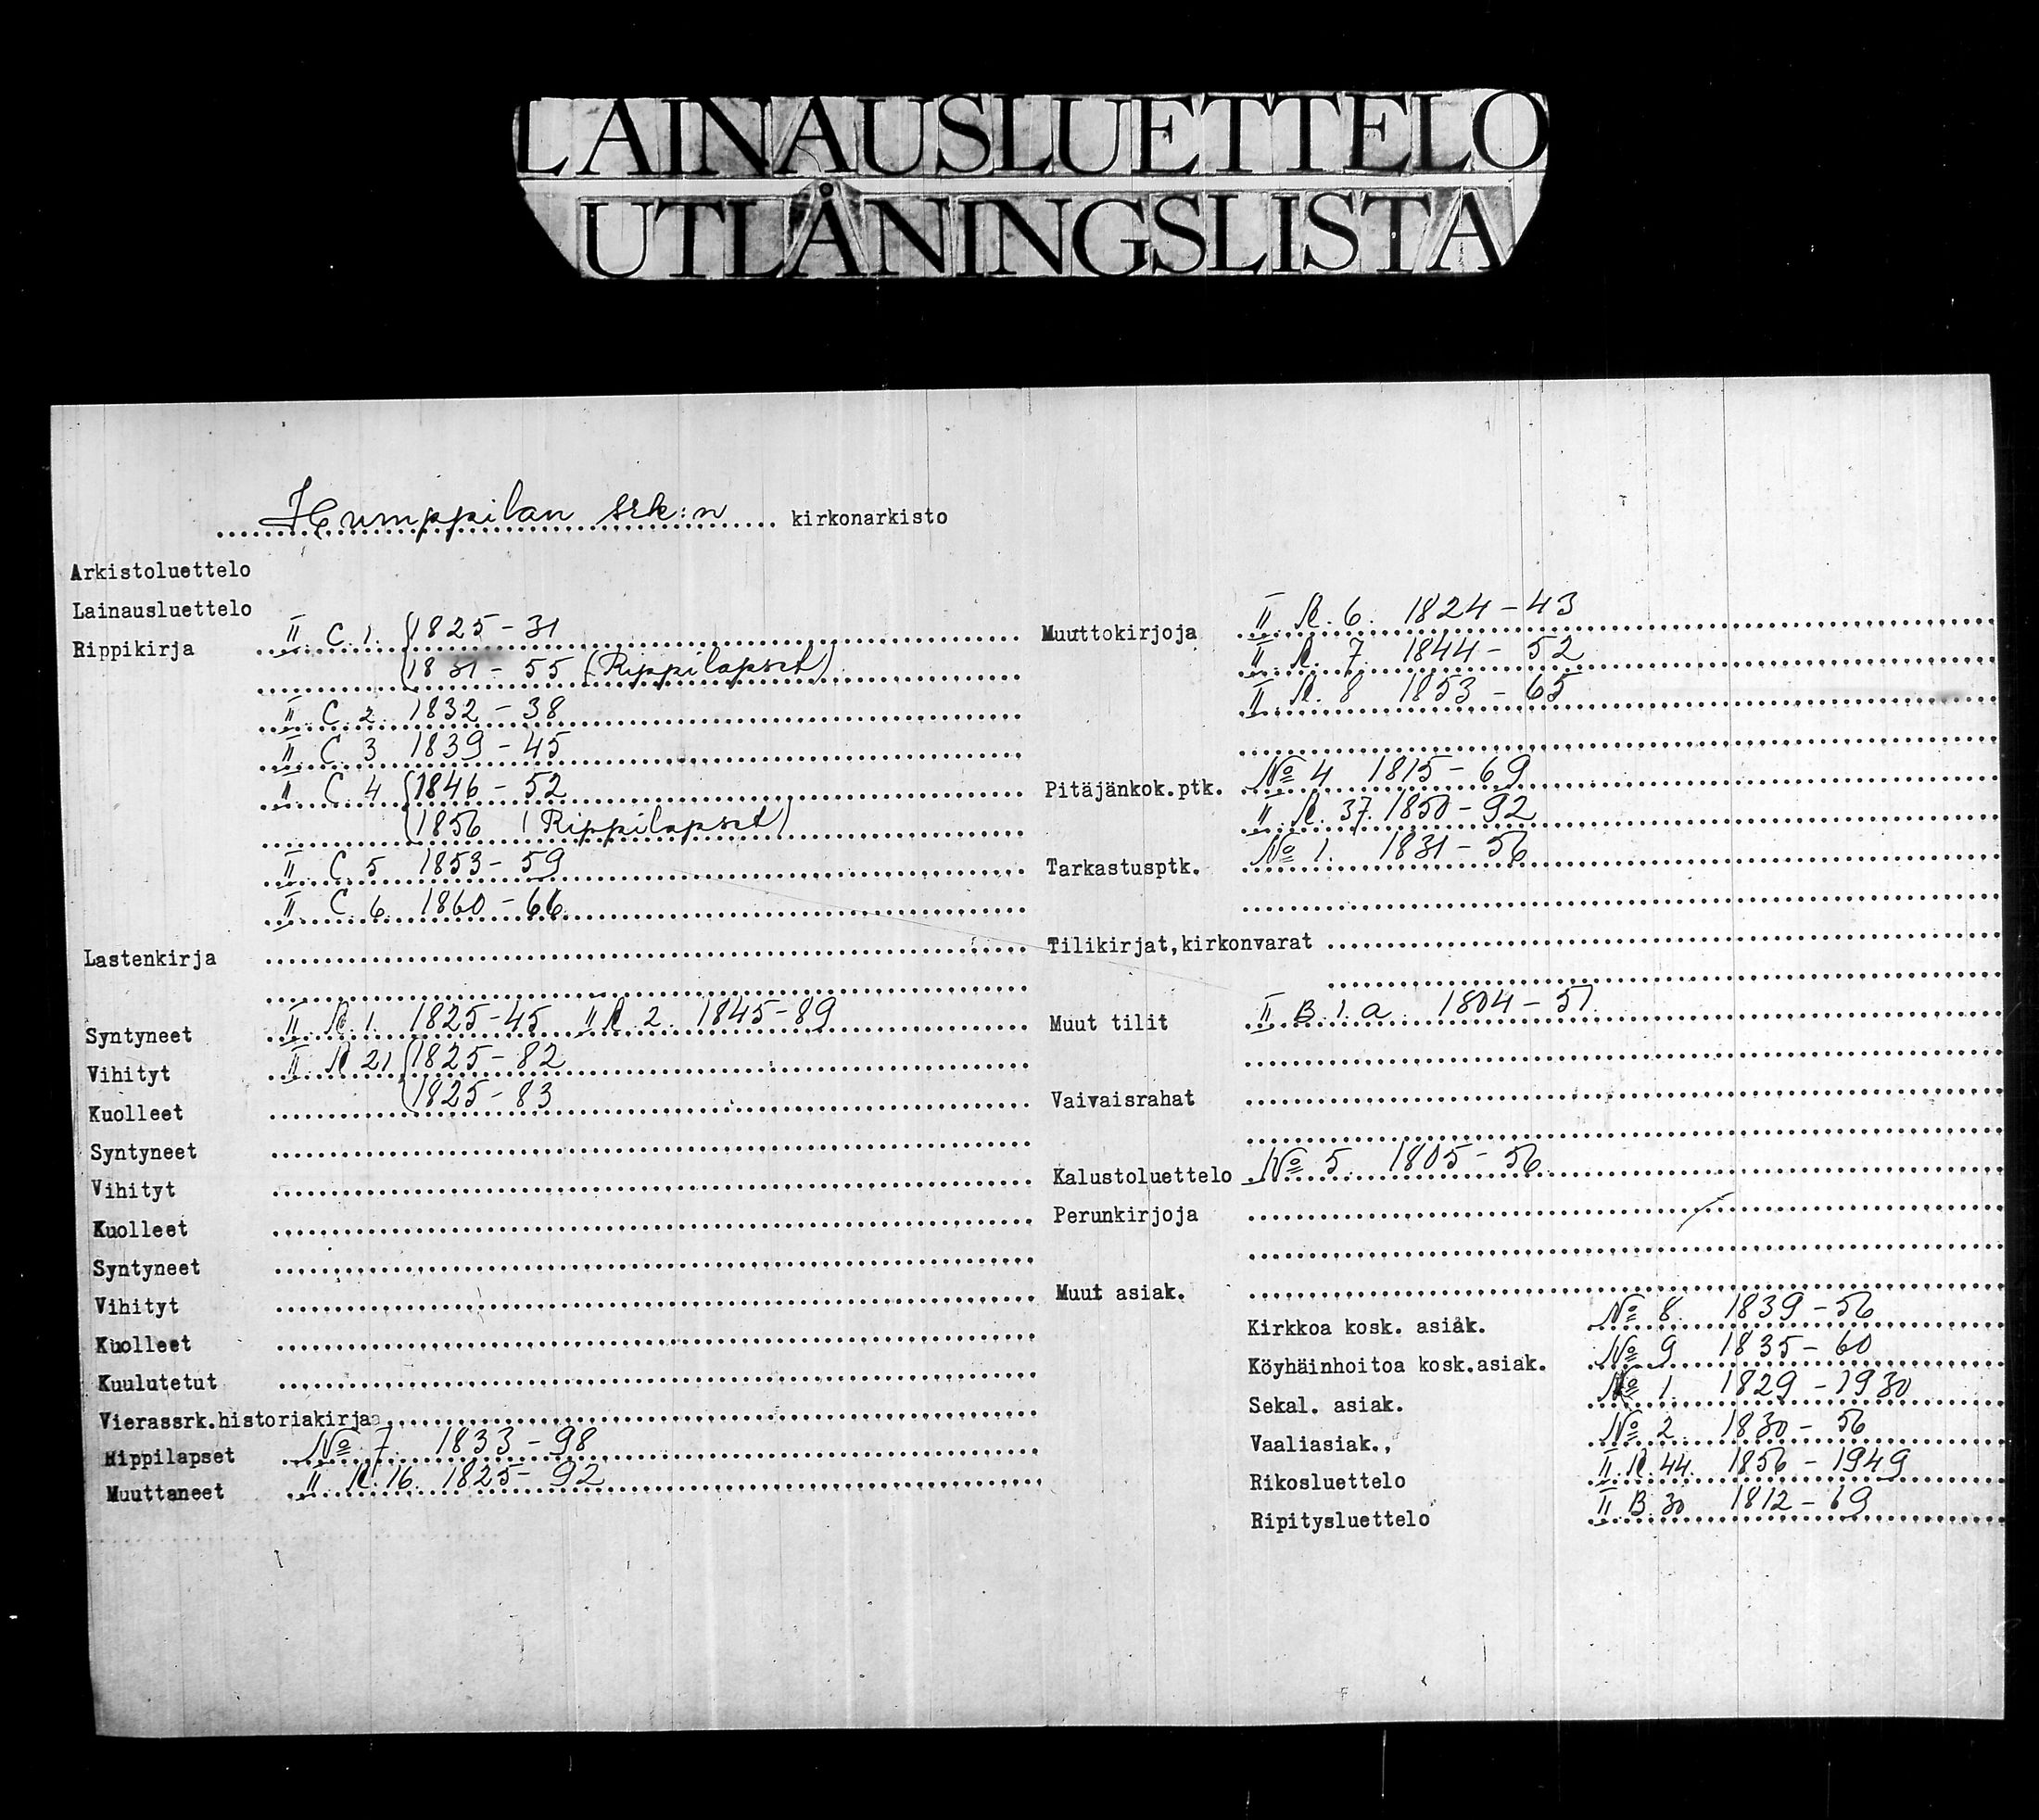 LAINAUSLUETTELO
UTLÅNINGSLISTA
Humppilan srk:n kirkonarkisto
Arkistoluettelo
Lainausluettelo
Rippikirja II C. 1. 1825-31
1831-55 (Rippilapset)
II C. 2 1832-38
II C. 3 1839-45
II C. 4 1846-52
1856 (Rippilapset)
II C. 5 1853-59
II C. 6 1860-66
Lastenkirja
Syntyneet II A. 1. 1825-45 II A. 2. 1845-89
Vihityt II A 21 1825-82
Kuolleet 1825-83
Syntyneet
Vihityt
Kuolleet
Syntyneet
Vihityt
Kuolleet
Kuulutetut
Vierassrk.historiakirja
Rippilapset No 7 1833-98
Muuttaneet II A. 16. 1825-92
Muuttokirjoja II A. 6. 1824-43
II A. 7. 1844-52
II A. 8 1853-65
Pitäjänkok.ptk. No 4 1815-69
II A. 37. 1850-92
Tarkastusptk. No 1. 1831-56
Tilikirjat,kirkonvarat
Muut tilit II B. 1. a 1804-51.
Vaivaisrahat
Kalustoluettelo No 5. 1805-56
Perunkirjoja
Muut asiak.
Kirkkoa kosk. asiak. No 8. 1839-56
Köyhäinhoitoa kosk.asiak. No 9 1835-60
Sekal. asiak. No 1. 1829-1930
Vaaliasiak., No 2 1830-56
Rikosluettelo II A. 44. 1856-1949
Ripitysluettelo II B. 30 1812-69